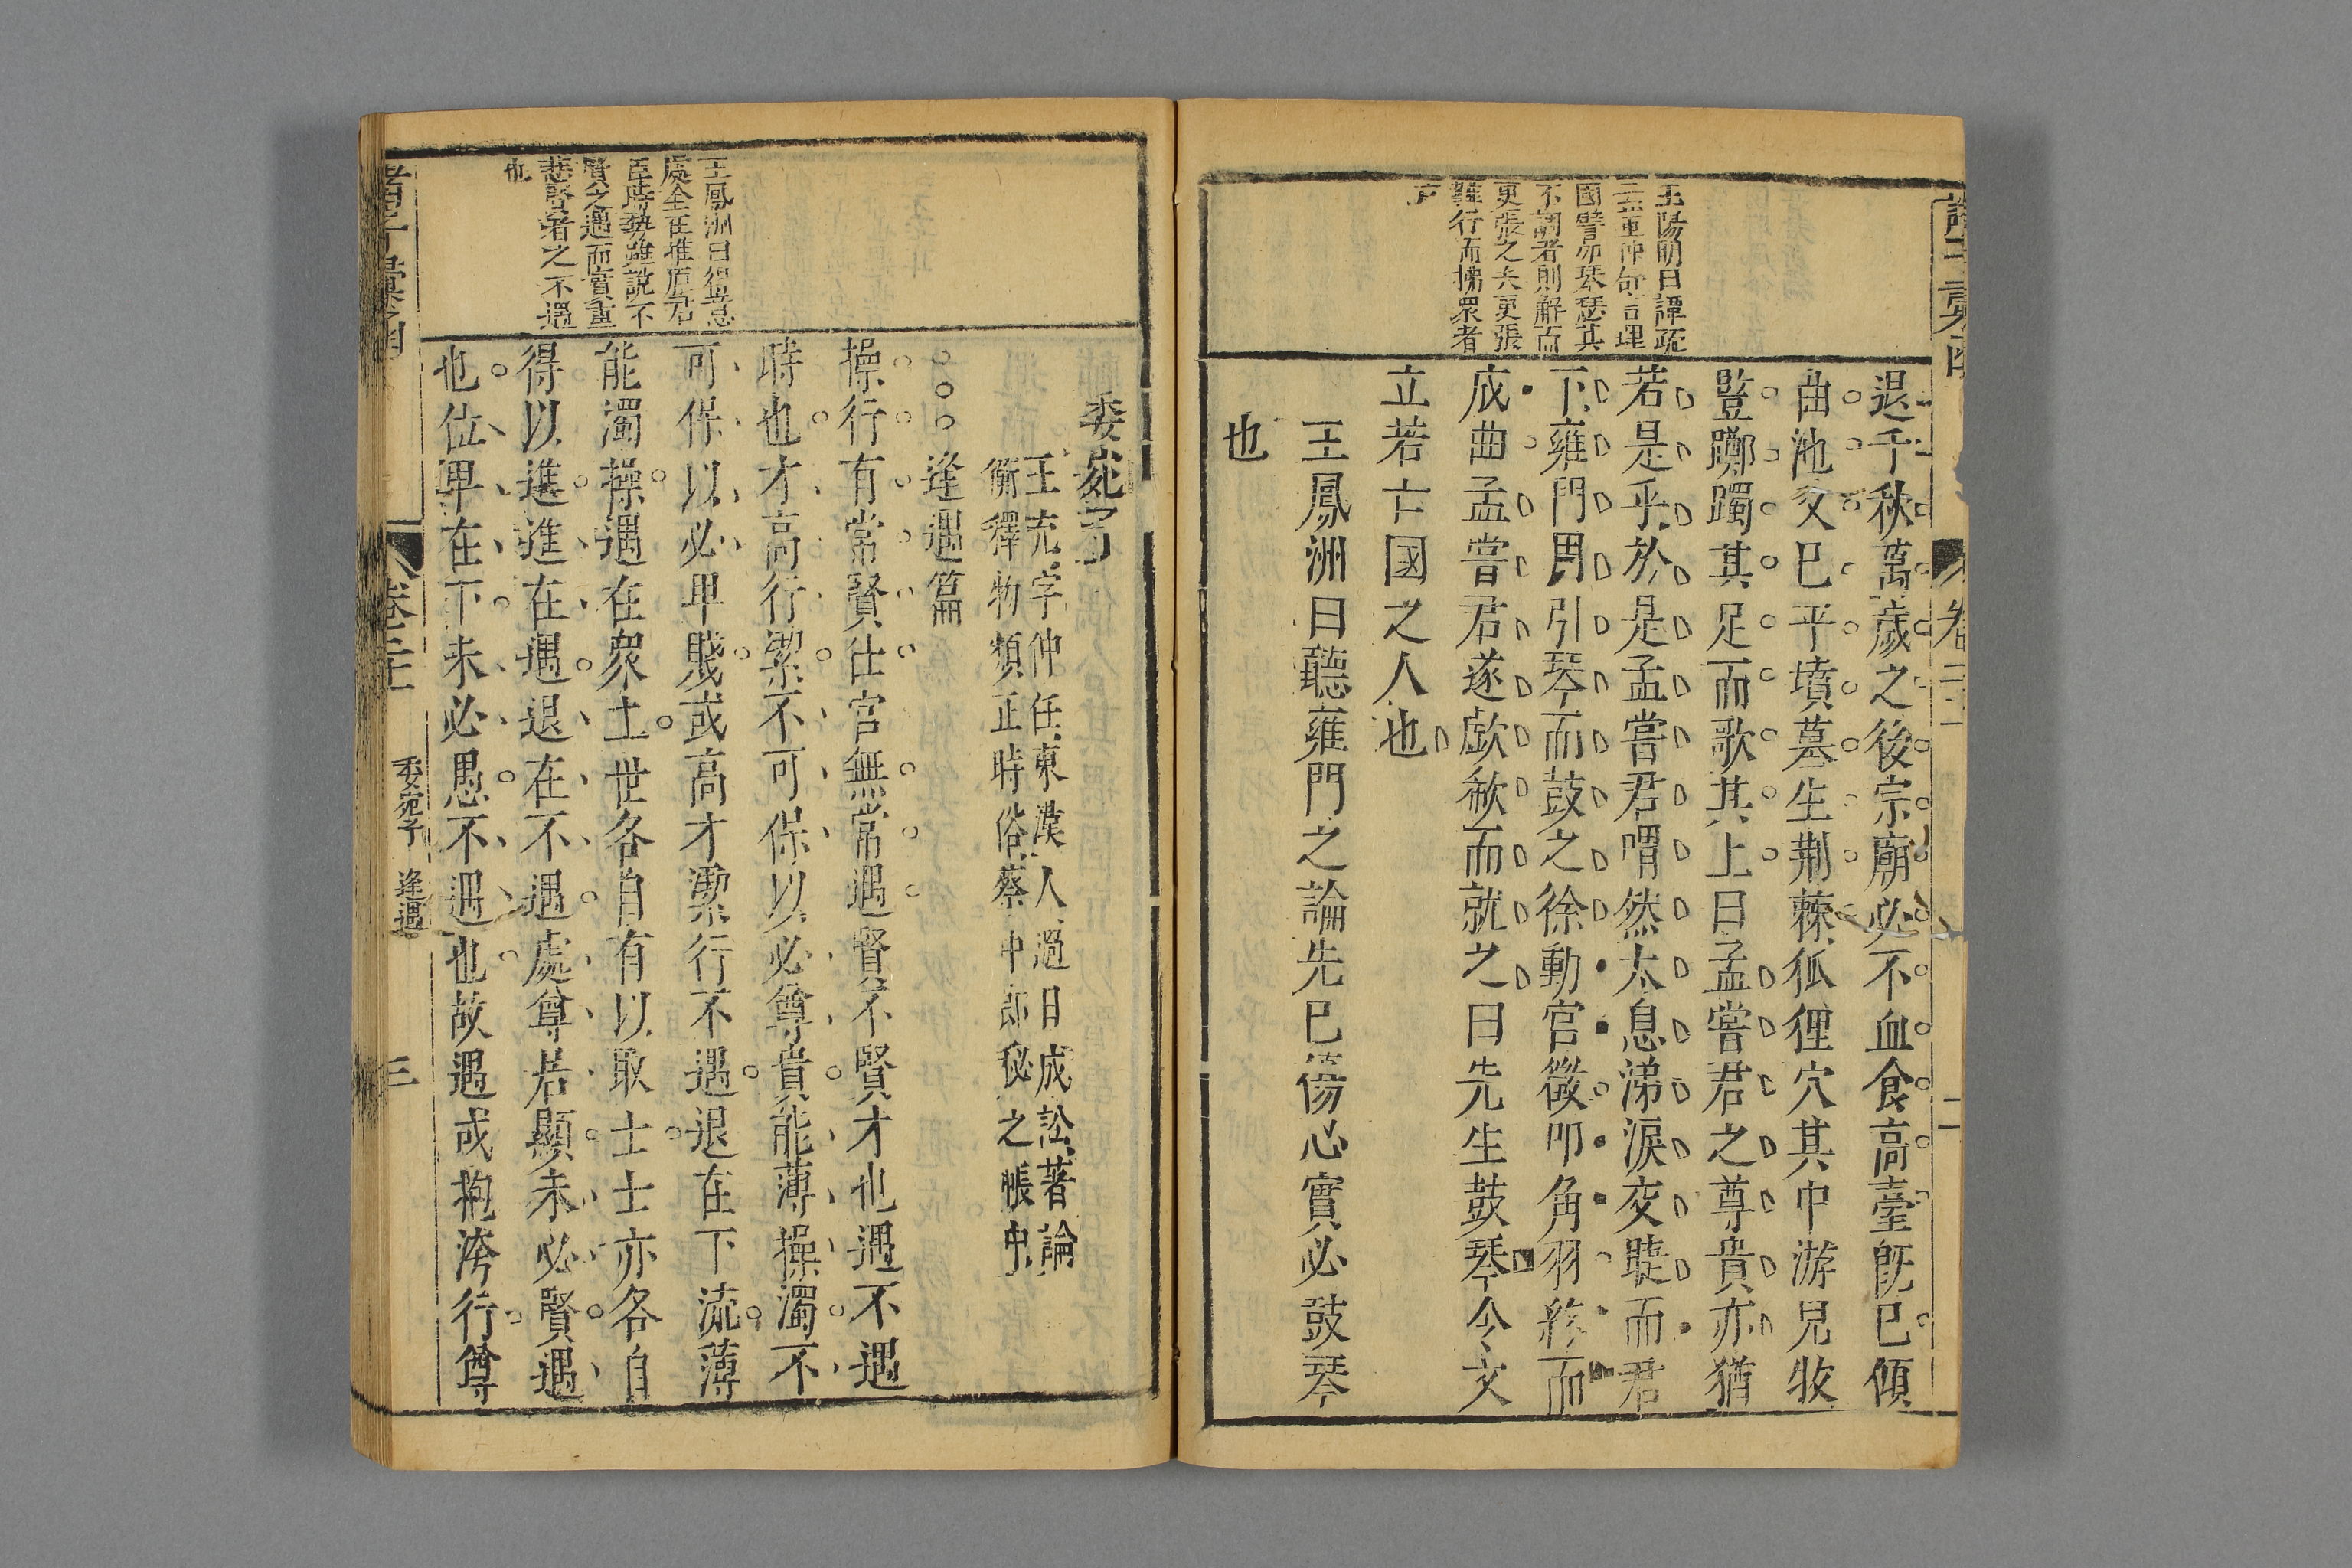 王陽明曰譚疏
國譬如琴瑟其
不調者則解而
更張之夫更張
難行而拂眾者
退千秋萬歲之後宗廟必不血食高臺旣已傾
曲池又已平墳墓生荆棘狐狸穴其中游兒牧
豎躑躅其足而歌其上曰孟嘗君之尊貴亦猶
若是乎於是孟嘗君喟然太息涕淚交睫而君
下雍門周引琴而鼓之徐動宮徵叩角羽終而
成曲孟嘗君遂歔欷而就之曰先生鼓琴令文
立若亡國之人也
王鳳洲曰聽雍門之論先已傷心實必鼓琴
也
卷二十
二
王鳳洲曰得意
處全在推原君
臣時勢雖說不
賢之遇而實重
悲賢者之不遇
也
委宛子
王充字仲任東漢人過目成誦著論
衡釋物類正時俗蔡中郎秘之帳中
逢遇篇
操行有常賢仕宦無常遇賢不賢才也遇不遇
時也才高行潔不可保以必尊貴能薄操濁不
可保以必卑賤或高才潔行不遇退在下流薄
能濁操遇在衆上世各自有以取士士亦各自
得以進進在遇退在不遇處尊居顯未必賢遇
也位卑在下未必愚不遇也故遇或抱洿行尊
諸子彙函
卷二十
委宛子 逢遇
三